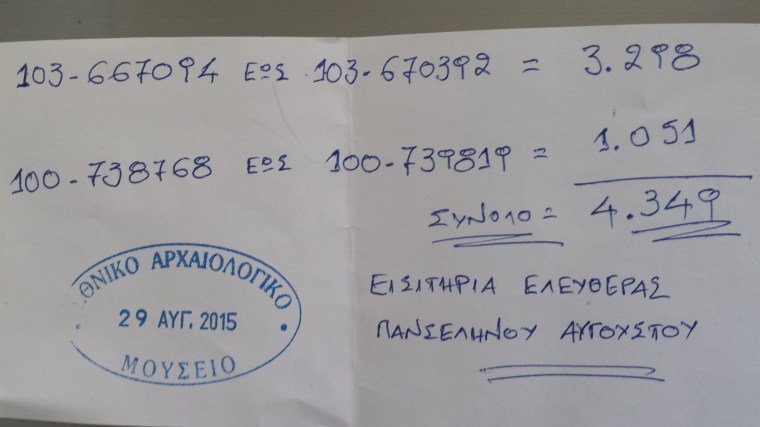 103-667094 ΕΩΣ 103-670392 = 3.298
100-738768 ΕΩΣ 100-739819 = 1.051
ΣΥΝΟΛΟ = 4.349
ΕΙΣΙΤΗΡΙΑ ΕΛΕΥΘΕΡΑΣ
ΠΑΝΣΕΛΗΝΟΥ ΑΥΓΟΥΣΤΟΥ
ΘΝΙΚΟ ΑΡΧΑΙΟΛΟΓΙΚΟ
29 ΑΥΓ. 2015
ΜΟΥΣΕΙΟ